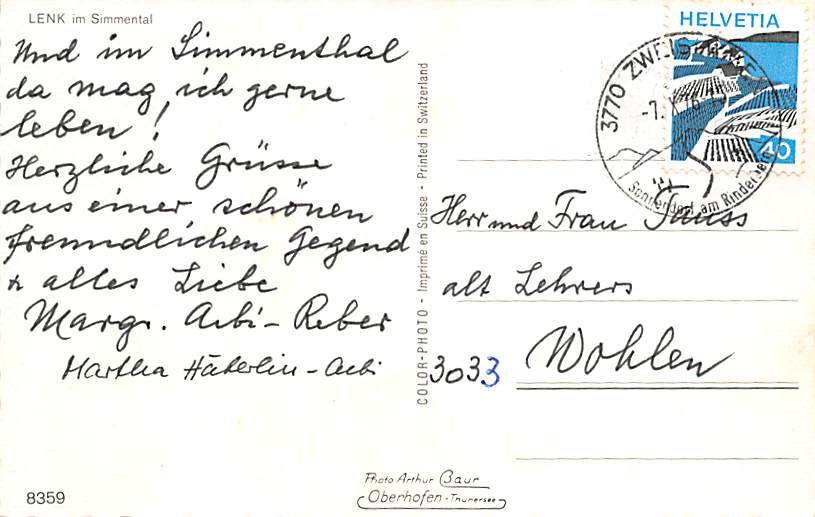 LENK im Simmental
Und im Simmenthal
da mag ich gerne
leben!
Herzliche Grüsse
aus einer schönen
freundlichen Gegend
& alles Liebe
Margr. Aebi-Reber
Martha Häberlin-Aebi
8359
COLOR-PHOTO - Imprimé en Suisse - Printed in Switzerland
HELVETIA
40
3770 ZWEISIMMEN
-7.X.76
Sonnendorf am Rinderberg
Herr und Frau
alt Lehrers
3033 Wohlen
Photo Arthur Baur
Oberhofen-Thunersee